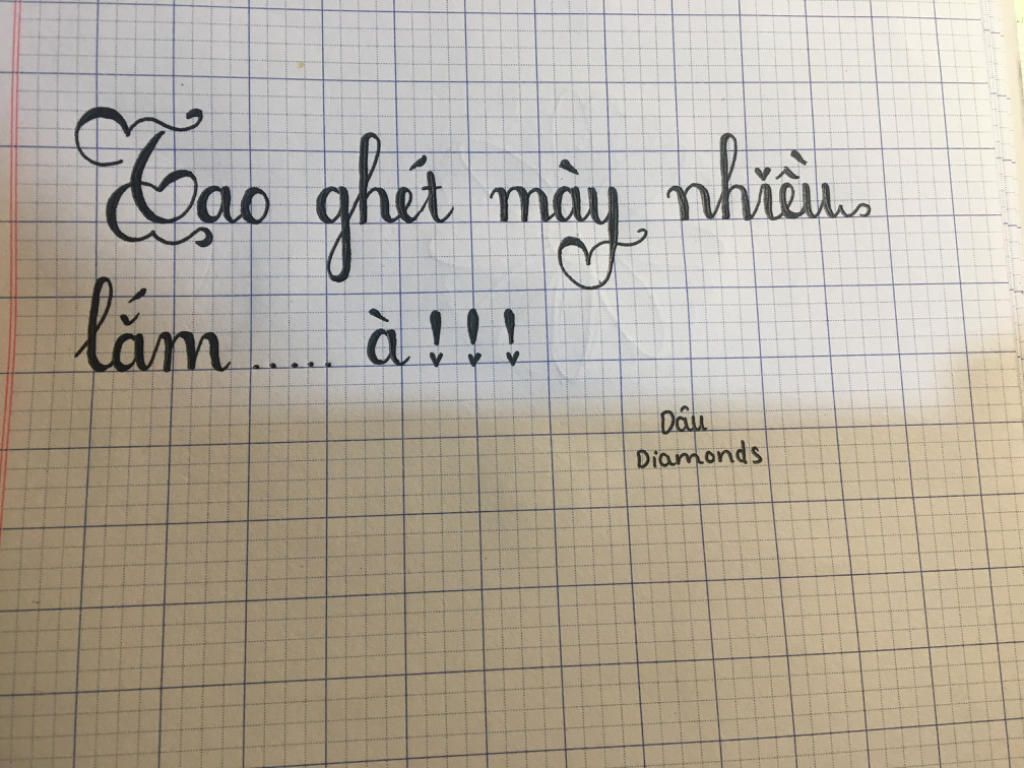 Tao ghét mày nhiều
lắm ..... à!!!
Dâu
Diamonds